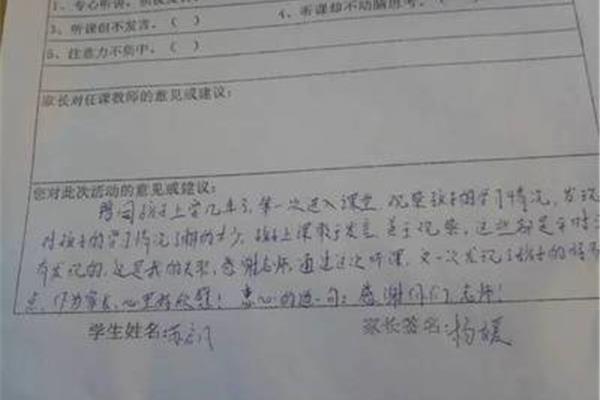 1、专心听讲，积极发言。（
3、听课但不发言。（ ） 4、听课却不动脑思考。（
5、注意力不集中。（ ）
家长对任课教师的意见或建议：
您对此次活动的意见或建议：
陪同孩子上学几年了，第一次进入课堂，观察孩子的学习情况，发现
对孩子的学习情况了解的太少，孩子上课敢于发言，善于观察，这些都是平时没
有发现的，这是我的失职，感谢老师，通过这次听课，又一次发现了孩子的
点，作为家长，心里特欣慰！衷心的道一句：感谢你们，老师！
学生姓名： 家长签名：杨媛